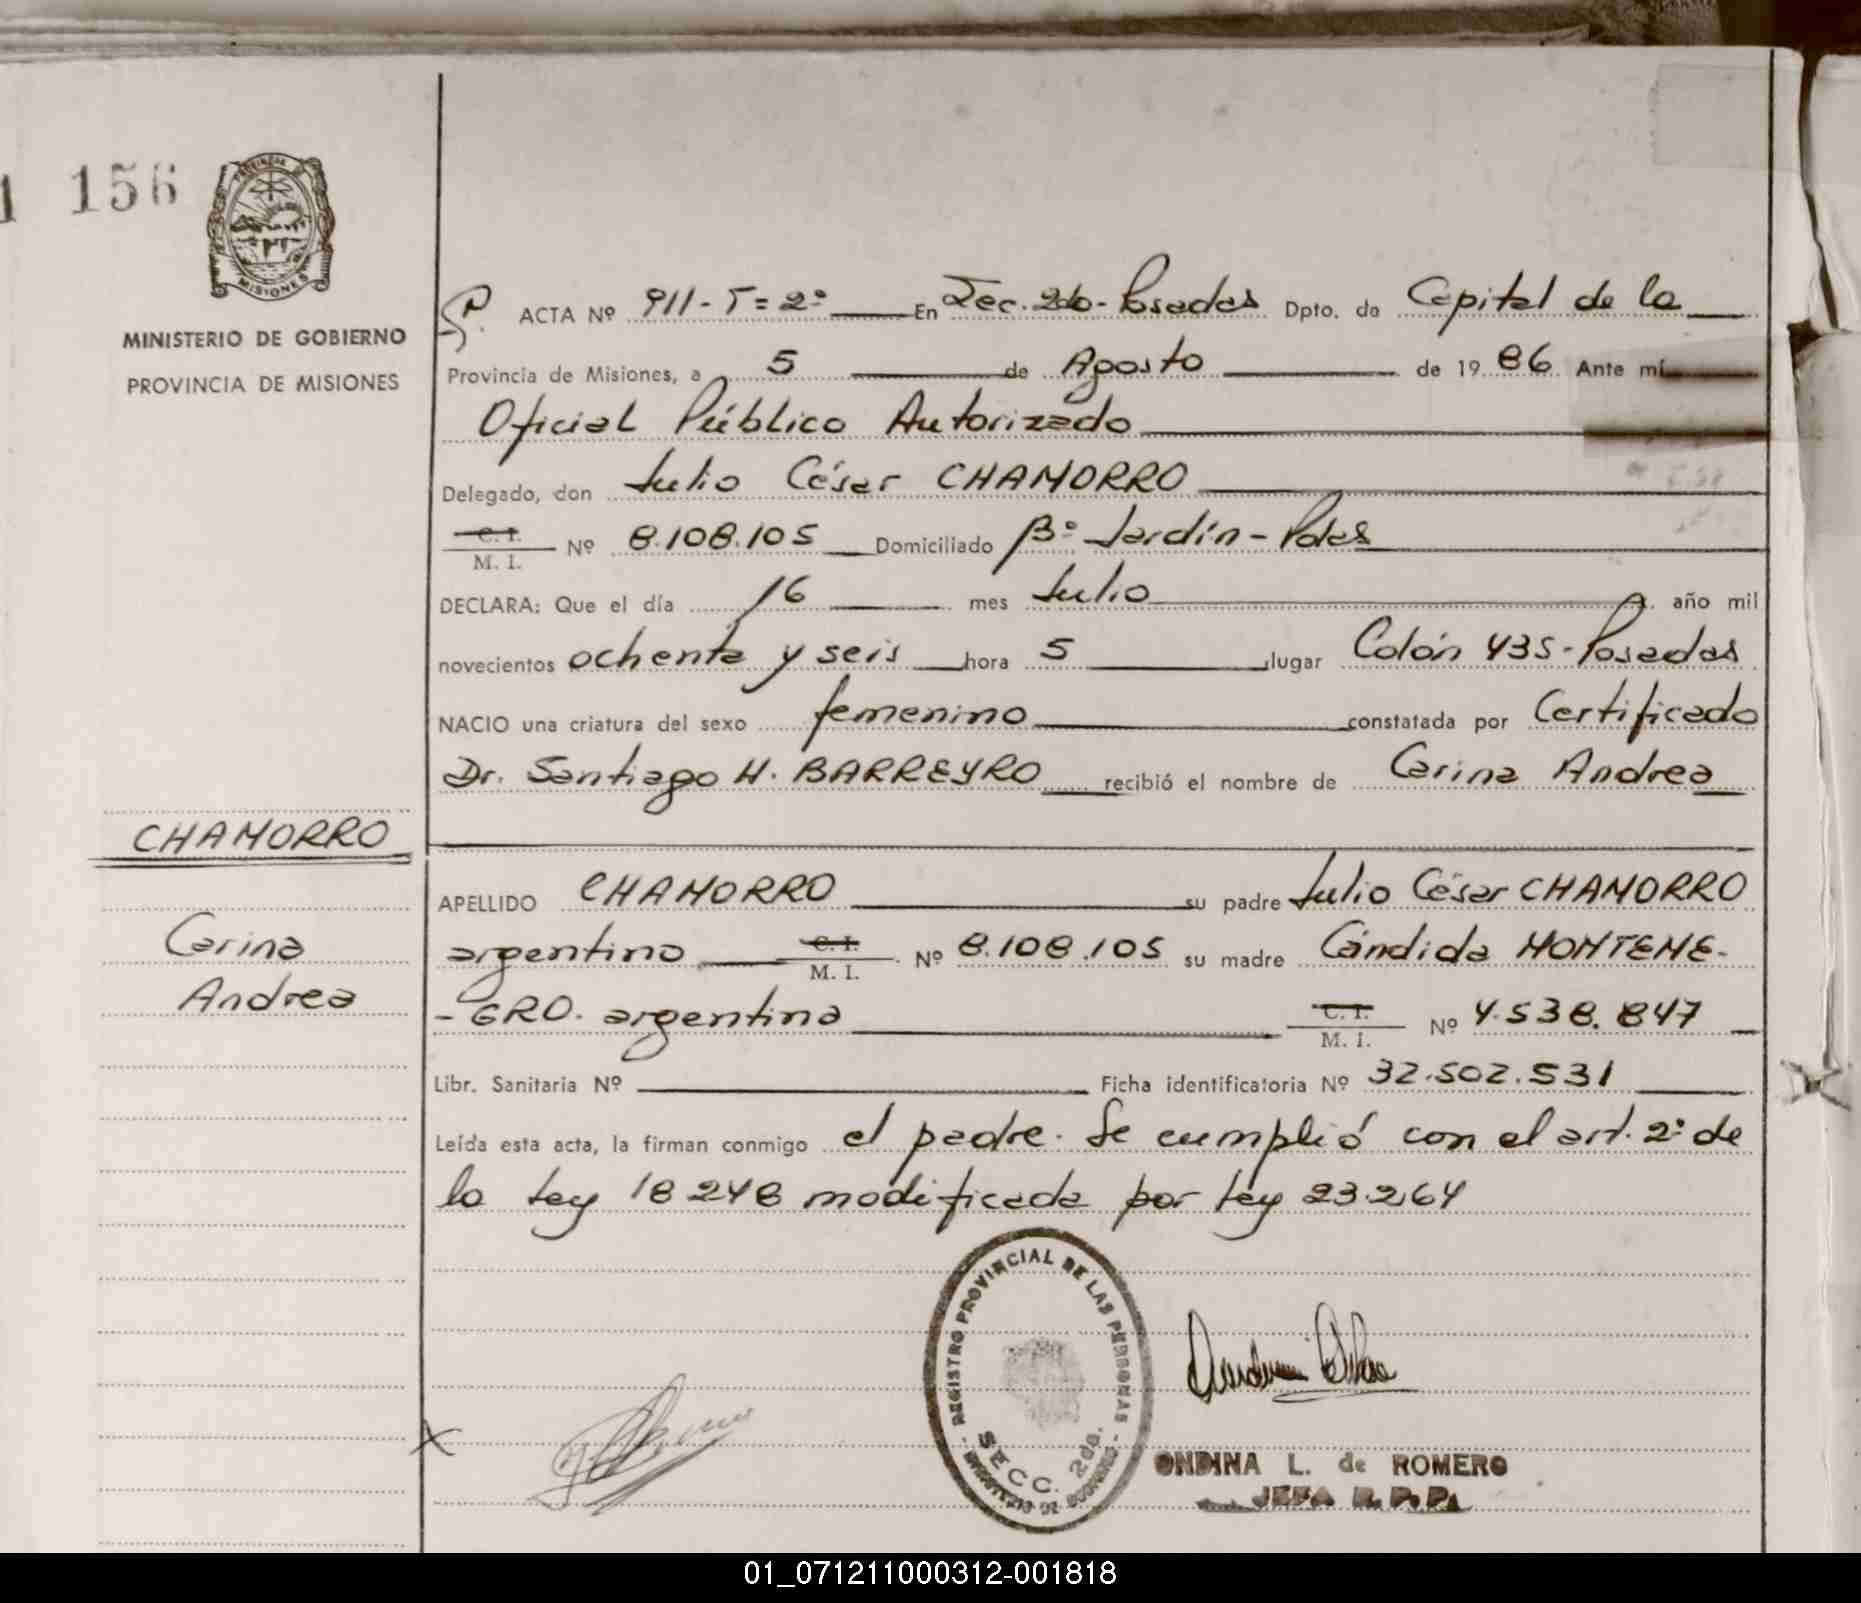 1 156
PROVINCIA DE
MISIONES
MINISTERIO DE GOBIERNO
PROVINCIA DE MISIONES
ACTA Nº 911-T=2º En Sec. 2do-Posadas Dpto. de Capital de la
Provincia de Misiones, a 5 de Agosto de 1986 Ante mí
Oficial Público Autorizado
Delegado, don Julio César CHAMORRO
C. I.
M. I. Nº 8.108.105 Domiciliado Bº Jardín - Pdas
DECLARA: Que el día 16 mes Julio año mil
novecientos ochenta y seis hora 5 lugar Colón 435-Posadas
NACIO una criatura del sexo femenino constatada por Certificado
Dr. Santiago H. BARREYRO recibió el nombre de Carina Andrea
CHAMORRO
Carina
Andrea
APELLIDO CHAMORRO su padre Julio César CHAMORRO
argentino C. I.
M. I. Nº 8.108.105 su madre Cándida MONTENE-
-GRO. argentina C. I.
M. I. Nº 4.538.847
Libr. Sanitaria Nº Ficha identificatoria Nº 32.502.531
Leída esta acta, la firman conmigo el padre. Se cumplió con el art. 2º de
la Ley 18248 modificada por Ley 23.264
REGISTRO PROVINCIAL DE LAS PERSONAS
SECC. 2da.
X
ONDINA L. de ROMERO
JEFA R.P.P.
01_071211000312-001818